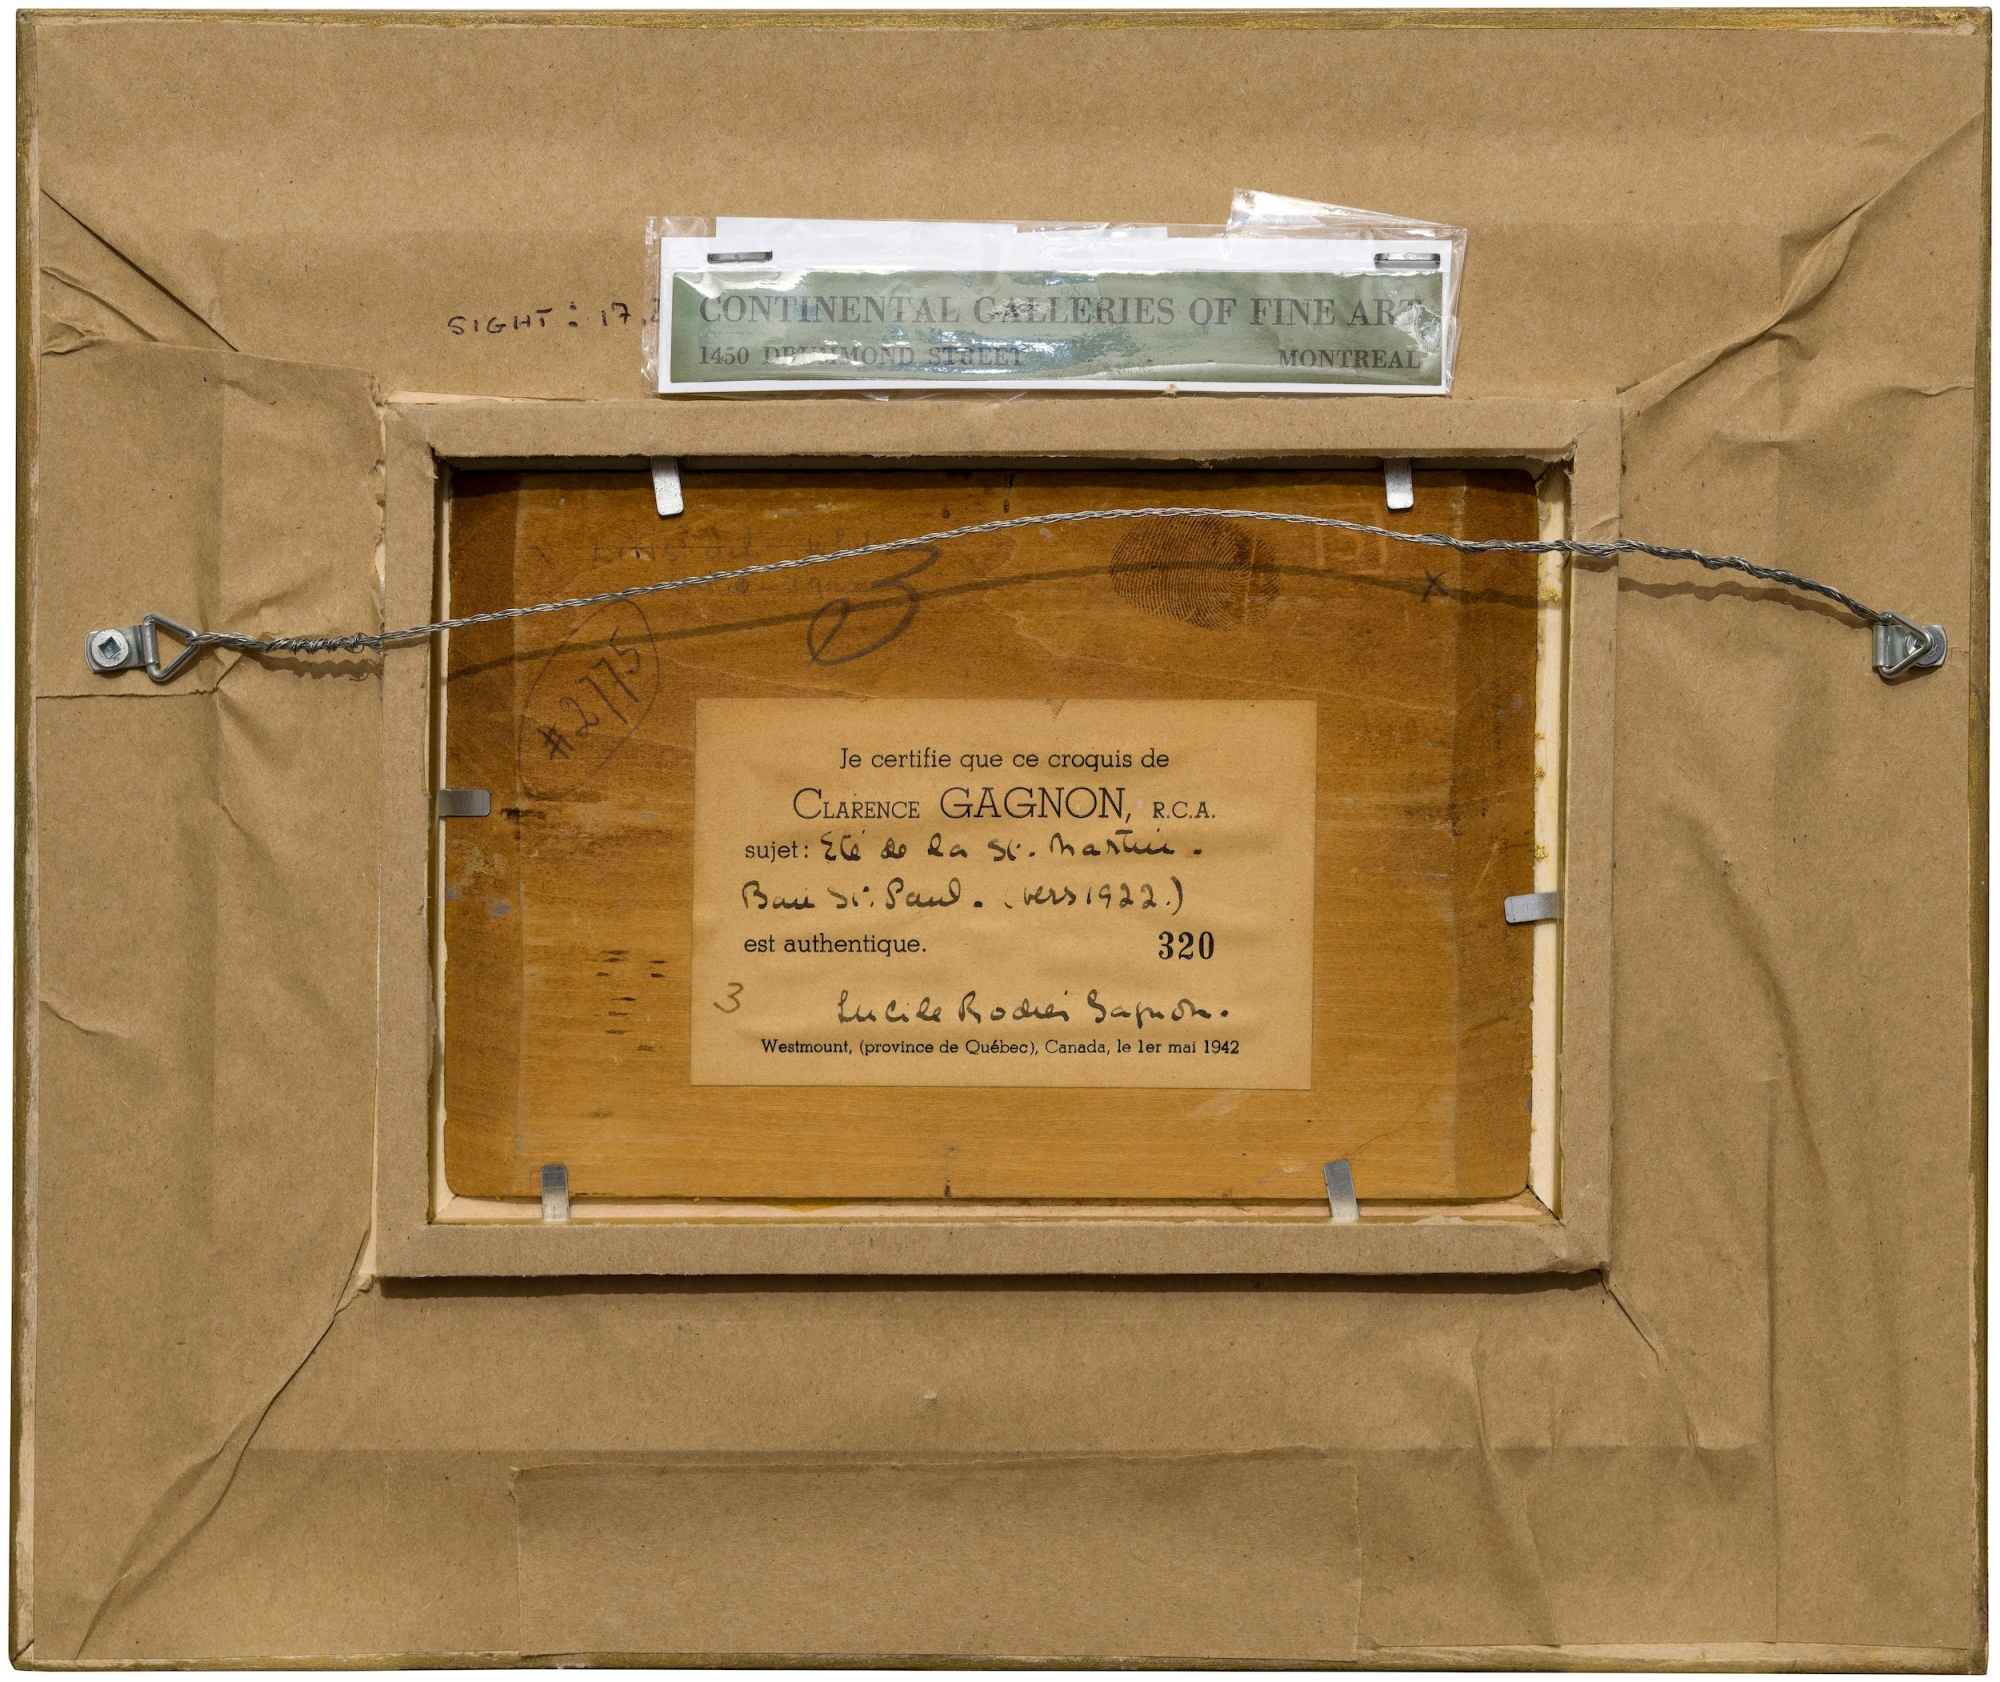 SIGHT: 17.
CONTINENTAL GALLERIES OF FINE ART
1450 DRUMMOND STREET MONTREAL
X
#2775
Je certifie que ce croquis de
CLARENCE GAGNON, R.C.A.
sujet: Eté de la St. Martin.
Baie St. Paul. (vers 1922.)
est authentique. 320
3
Lucile Rodier Gagnon.
Westmount, (province de Québec), Canada, le 1er mai 1942